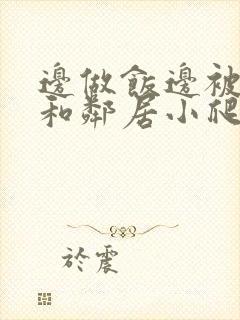 邊做飯邊被
和鄰居小爬
於震